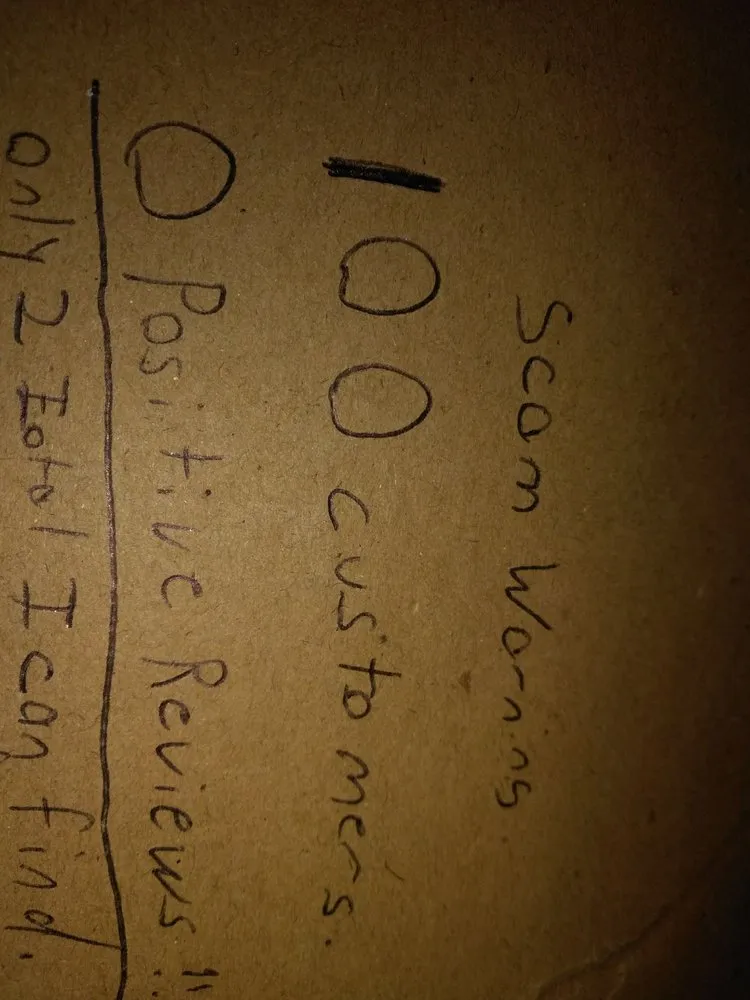 Scam Warning
100 customers.
0 Positive Reviews!!
only 2 total I can find.